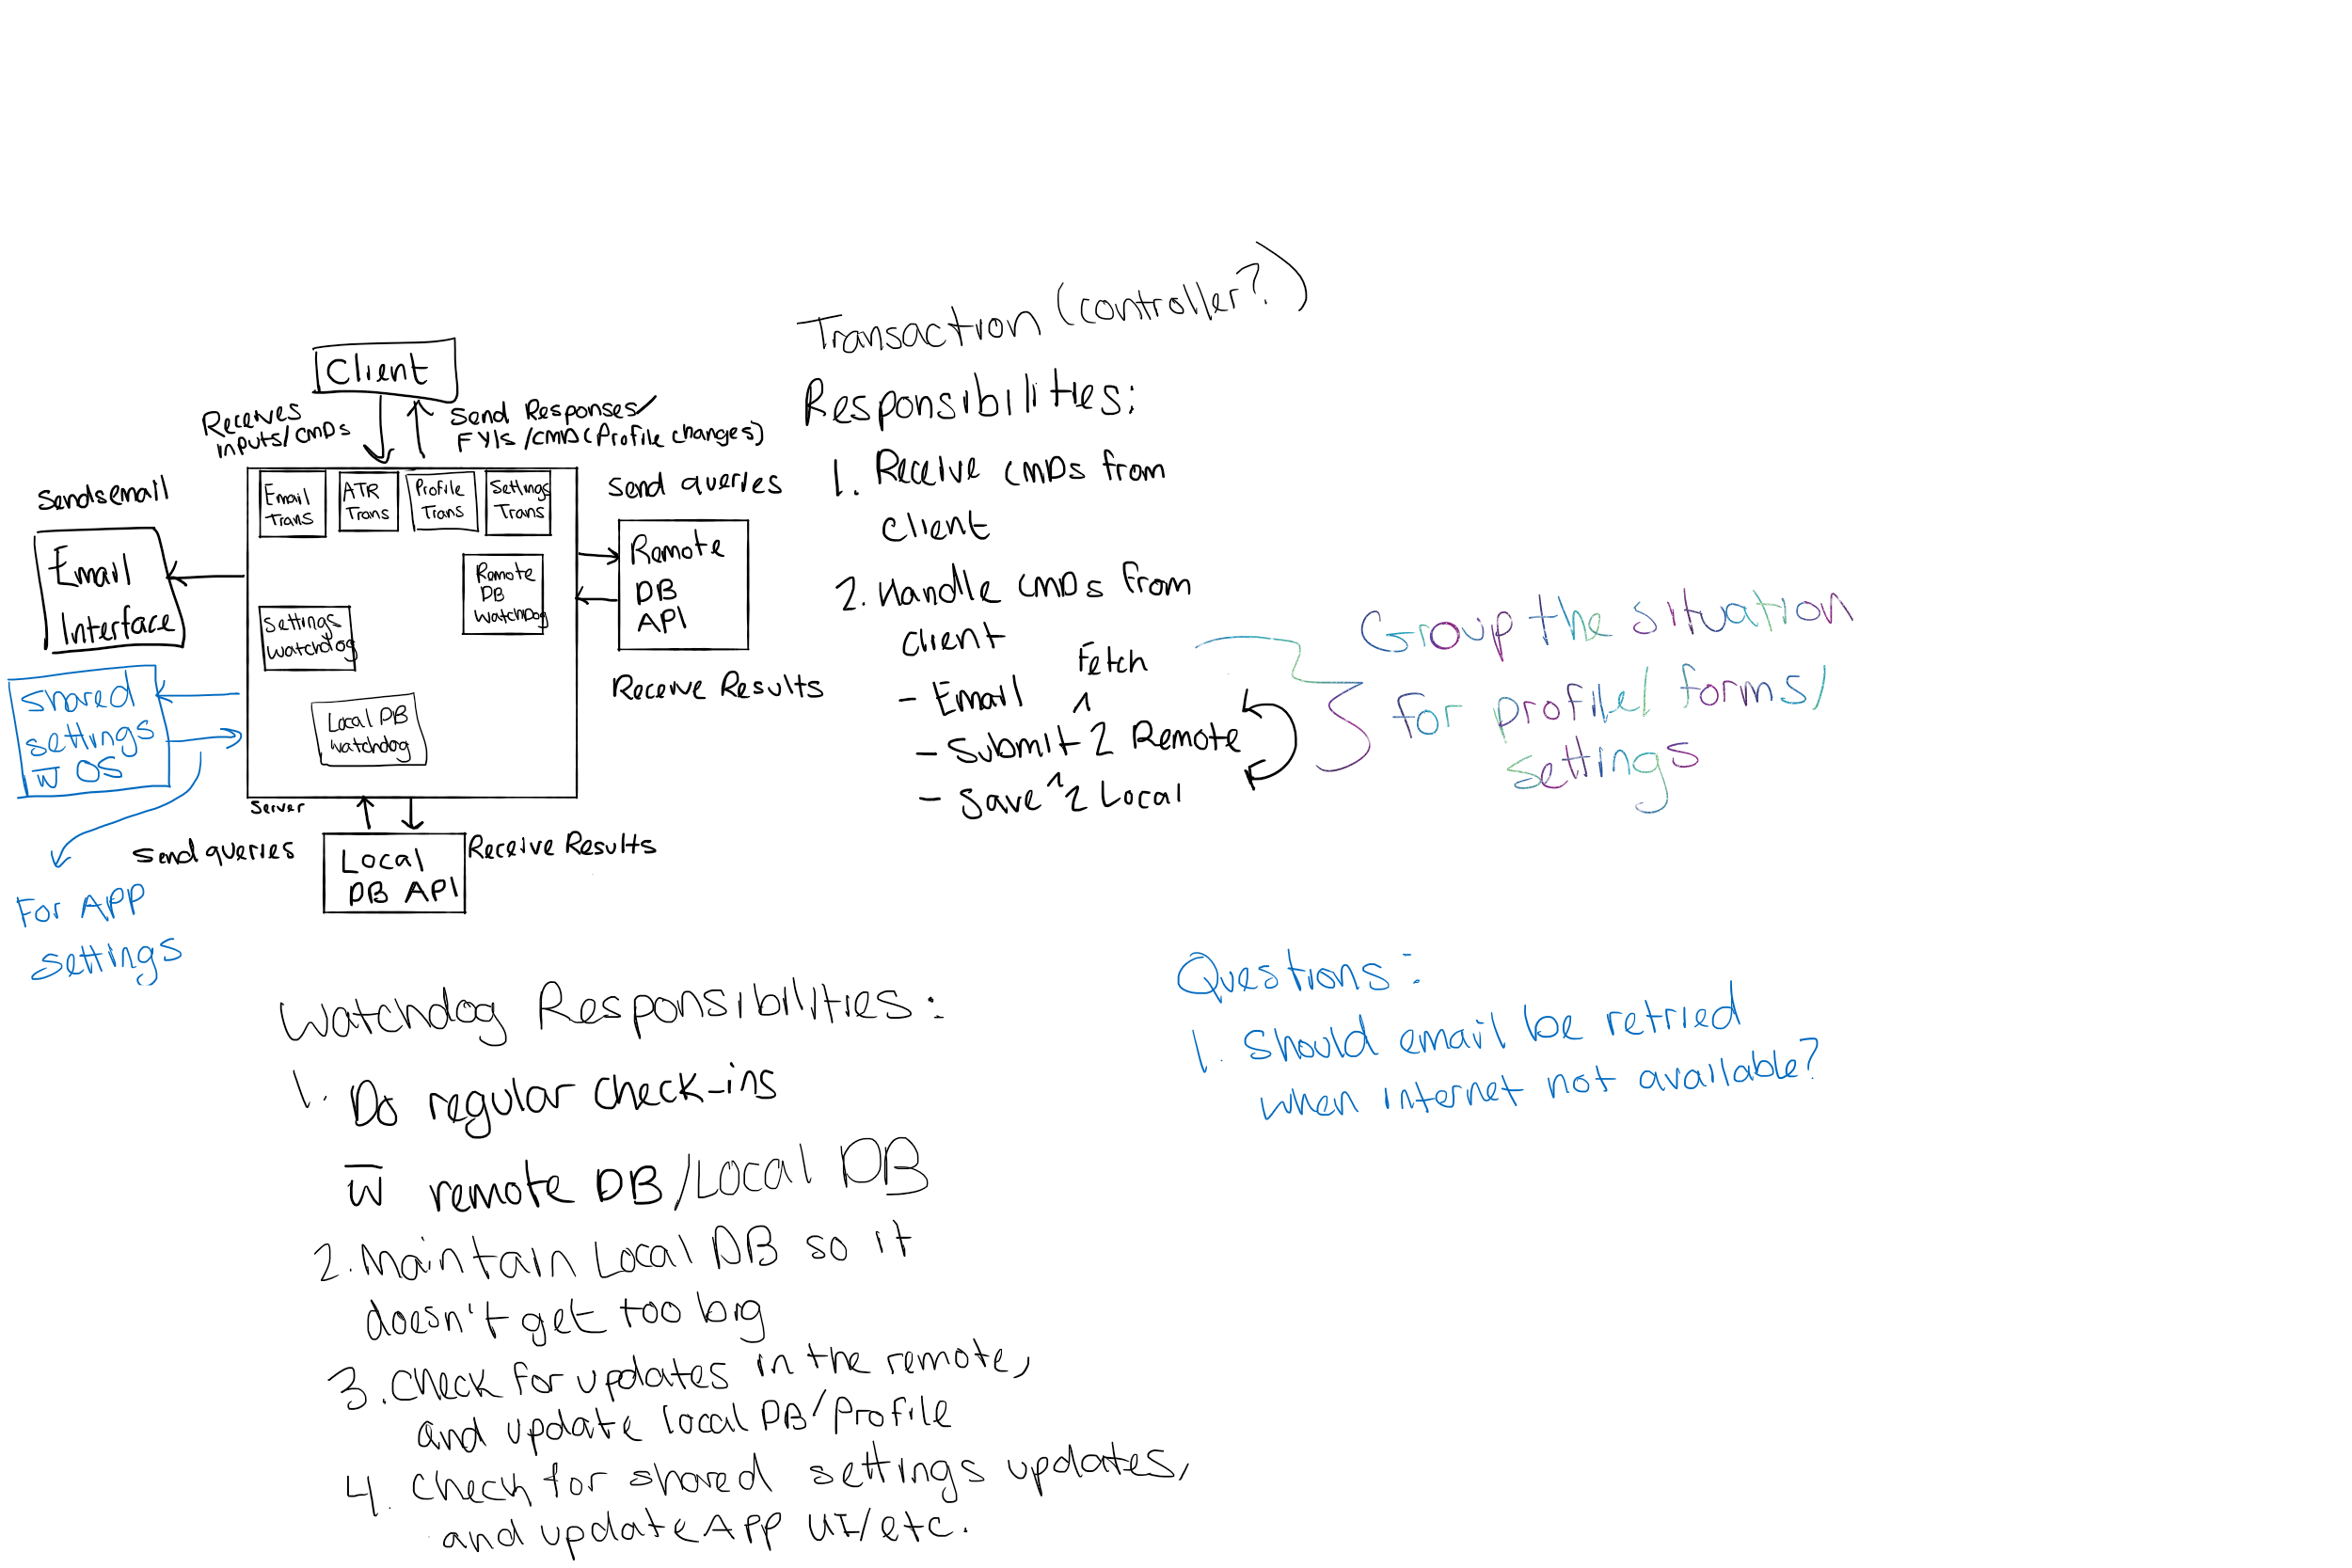 Client
Receives
inputs/CMDs
Send Responses/
FYIs/CMD(Profile changes)
Sends email
Email
Interface
Email
Trans
ATR
Trans
Profile
Trans
Settings
Trans
Send queries
Remote
DB
API
Remote
DB
WatchDog
Receive Results
Settings
Watchdog
Shared
settings
w̅ OS
Local DB
Watchdog
Server
Send queries
Receive Results
Local
DB API
For APP
settings
Transaction (controller?)
Responsibilities:
1. Receive CMDs from
client
2. Handle CMDs from
client
- Email
Fetch
- Submit ^ 2 Remote
- Save ^ 2 Local
Group the situation
for profile/ forms/
settings
Watchdog Responsibilities:
1. Do regular check-ins
w̅ remote DB/Local DB
2. Maintain Local DB so it
doesn't get too big
3. Check for updates in the remote,
and update local DB/Profile
4. Check for shared settings updates,
and update App UI/etc.
Questions:
1. Should email be retried
when internet not available?